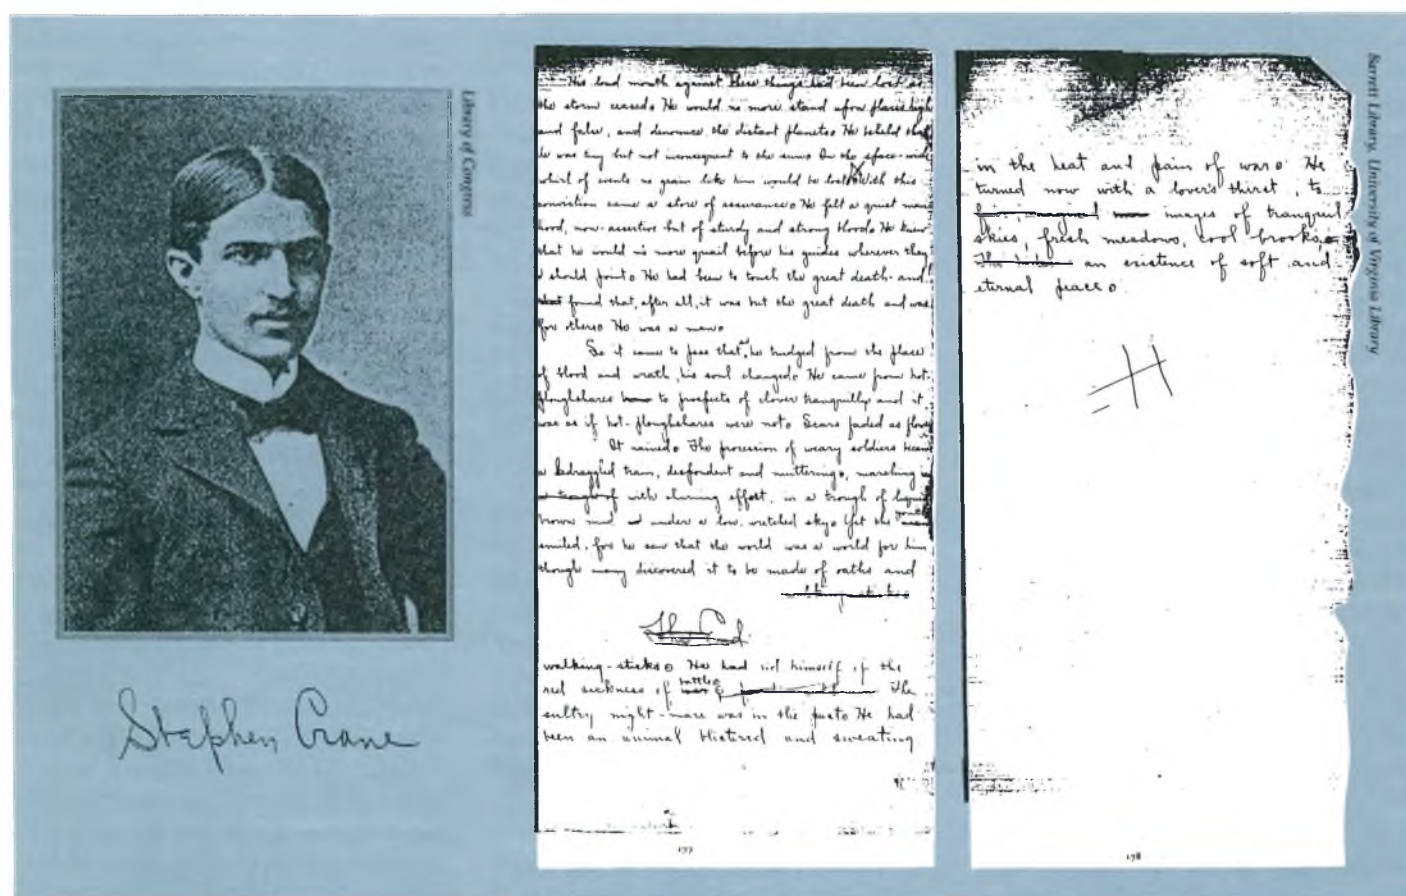 Library of Congress
Stephen Crane
His loud mouth against these things had been lost as
the storm ceased. He would no more stand upon places high
and false, and denounce the distant planets. He beheld that
he was tiny but not inconsequent to the sun. In the space-wide
whirl of events no grain like him would be lost. With this
conviction came a store of assurance. He felt a quiet man-
hood, non-assertive but of sturdy and strong blood. He knew
that he would no more quail before his guides wherever they
should point. He had been to touch the great death and
found that, after all, it was but the great death and was
for others. He was a man.
So it came to pass that, as he trudged from the place
of blood and wrath, his soul changed. He came from hot-
ploughshares to prospects of clover tranquilly and it
was as if hot-ploughshares were not. Scars faded as flowers
It rained. The procession of weary soldiers became
a bedraggled train, despondent and muttering, marching
with churning effort, in a trough of liquid
brown mud under a low, wretched sky. Yet the youth
smiled, for he saw that the world was a world for him
though many discovered it to be made of oaths and
walking-sticks.
The End
walking-sticks. He had rid himself of the
red sickness of battle. The
sultry night-mare was in the past. He had
been an animal blistered and sweating
177
in the heat and pain of war. He
turned now with a lover's thirst, to
images of tranquil
skies, fresh meadows, cool brooks.
an existence of soft and
eternal peace.
178
Barrett Library, University of Virginia Library